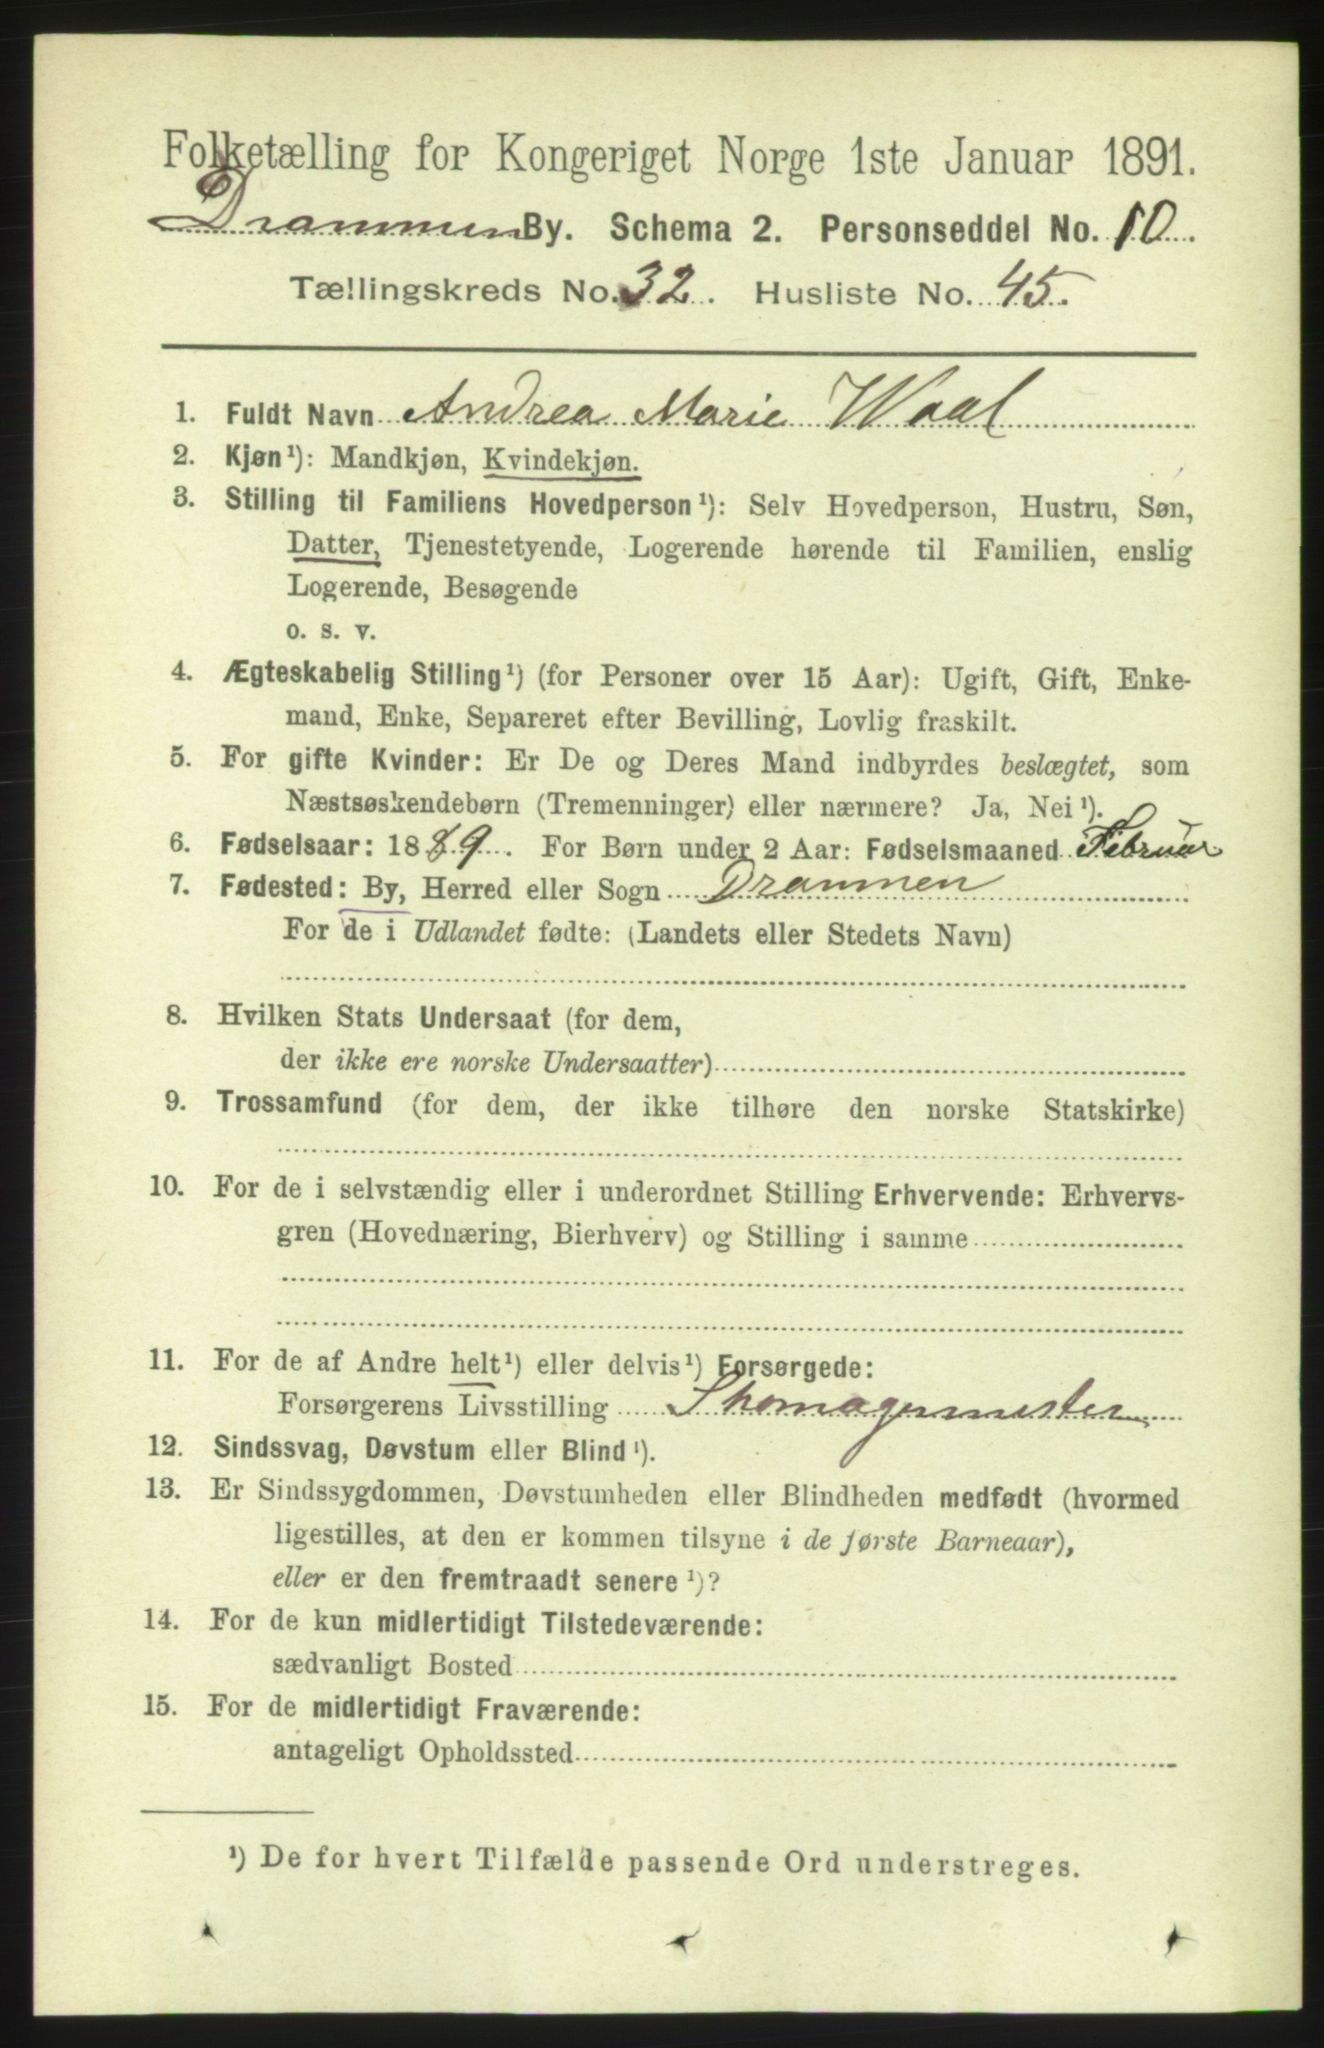 Folketælling for Kongeriget Norge 1ste Januar 1891.
Drammen By. Schema 2. Personseddel No. 10
Tællingskreds No. 32. Husliste No. 45.
1. Fuldt Navn Andrea Marie Waal
2. Kjøn¹): Mandkjøn, Kvindekjøn.
3. Stilling til Familiens Hovedperson¹): Selv Hovedperson, Hustru, Søn,
Datter, Tjenestetyende, Logerende hørende til Familien, enslig
Logerende, Besøgende
o. s. v.
4. Ægteskabelig Stilling¹) (for Personer over 15 Aar): Ugift, Gift, Enke-
mand, Enke, Separeret efter Bevilling, Lovlig fraskilt.
5. For gifte Kvinder: Er De og Deres Mand indbyrdes beslægtet, som
Næstsøskendebørn (Tremenninger) eller nærmere? Ja, Nei¹).
6. Fødselsaar: 1889. For Børn under 2 Aar: Fødselsmaaned Februar
7. Fødested: By, Herred eller Sogn Drammen
For de i Udlandet fødte: (Landets eller Stedets Navn)
8. Hvilken Stats Undersaat (for dem,
der ikke ere norske Undersaatter)
9. Trossamfund (for dem, der ikke tilhøre den norske Statskirke)
10. For de i selvstændig eller i underordnet Stilling Erhvervende: Erhvervs-
gren (Hovednæring, Bierhverv) og Stilling i samme
11. For de af Andre helt¹) eller delvis¹) Forsørgede:
Forsørgerens Livsstilling Skomagermester
12. Sindssvag, Døvstum eller Blind¹).
13. Er Sindssygdommen, Døvstumheden eller Blindheden medfødt (hvormed
ligestilles, at den er kommen tilsyne i de første Barneaar),
eller er den fremtraadt senere¹)?
14. For de kun midlertidigt Tilstedeværende:
sædvanligt Bosted
15. For de midlertidigt Fraværende:
antageligt Opholdssted
¹) De for hvert Tilfælde passende Ord understreges.